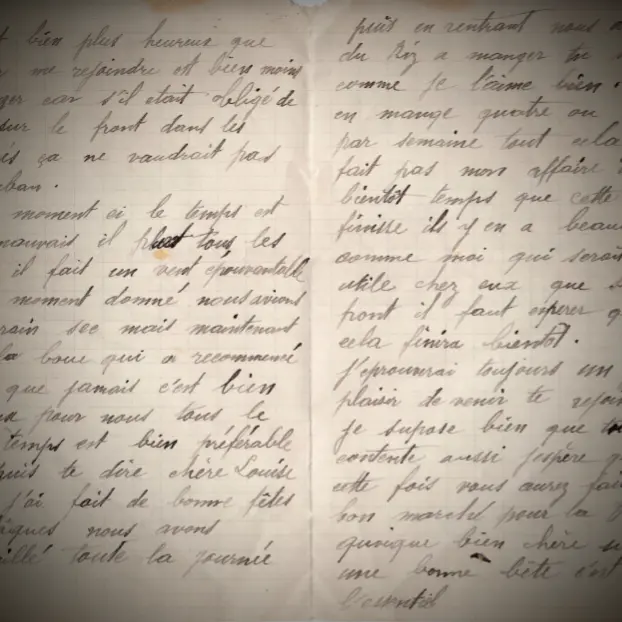 t bien plus heureux que
me rejoindre est bien moins
ger car s'il etait obligé de
sur le front dans les
és ça ne vaudrait pas
ban.
moment ci le temps est
mauvais il pleut tous les
il fait un vent épouvantable
moment donné nous avions
rain sec mais maintenant
la boue qui a recommencé
que jamais c'est bien
pour nous tous le
temps est bien préférable
puis te dire chère Louise
j'ai fait de bonne fêtes
âques nous avons
illé toute la journée
puis en rentrant nous a
du Riz a manger tu
comme je l'aime bien.
en mange quatre ou
par semaine tout cela
fait pas mon affaire
bientôt temps que cette
finisse ils y en a beau
comme moi qui serai
utile chez eux que s
front il faut esperer q
cela finira bientôt.
J'eprouverai toujours un
plaisir de venir te rejoin
je supose bien que
contente aussi j'espère q
cette fois vous aurez fai
bon marché pour la
quoique bien chère
une bonne bête c'est
l'essentiel